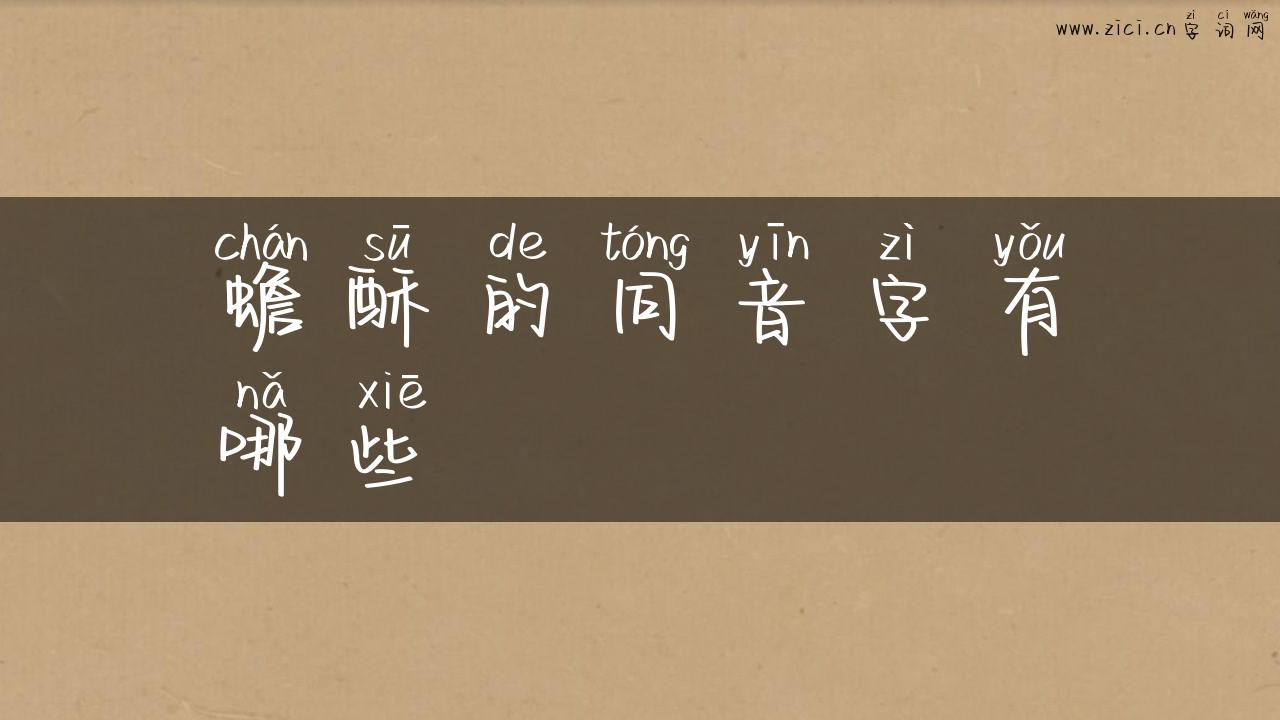 zì cí wǎng
www.zici.cn 字 词 网
chán sū de tóng yīn zì yǒu
蟾 酥 的 同 音 字 有
nǎ xiē
哪 些